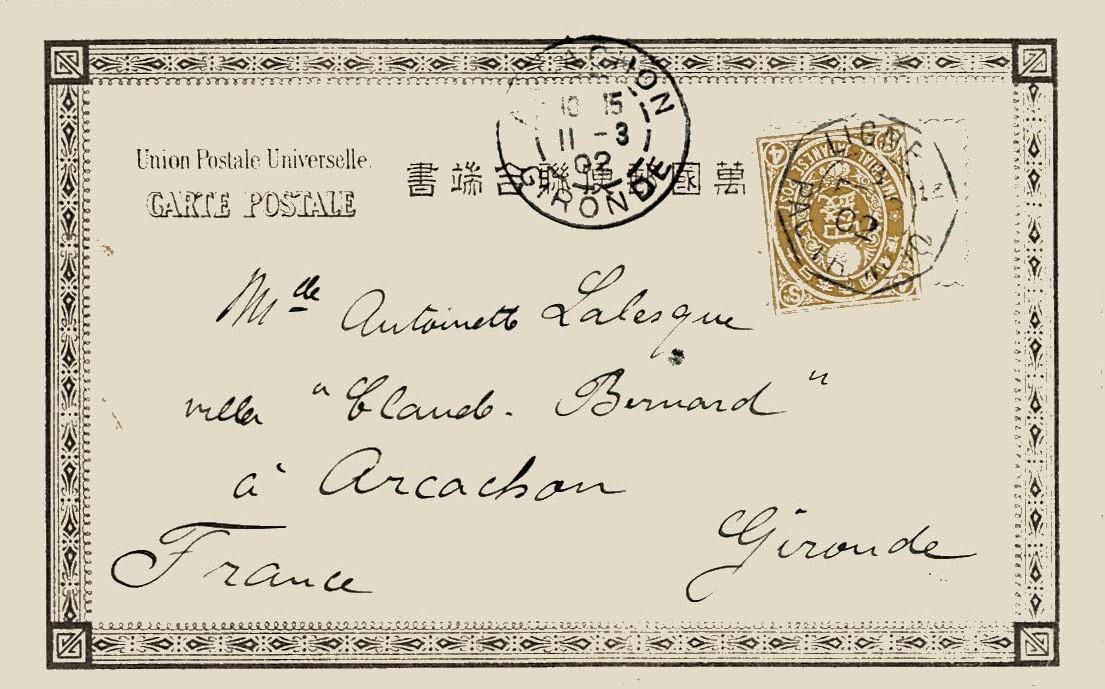 Union Postale Universelle.
CARTE POSTALE
書端合聯便郵國萬
ARCACHON
10 15
11 - 3
02
GIRONDE
LIGNE
02
PAQ. FR.
4
4
Mlle Antoinette Lalesque
villa "Claude-Bernard"
à Arcachon
Gironde
France